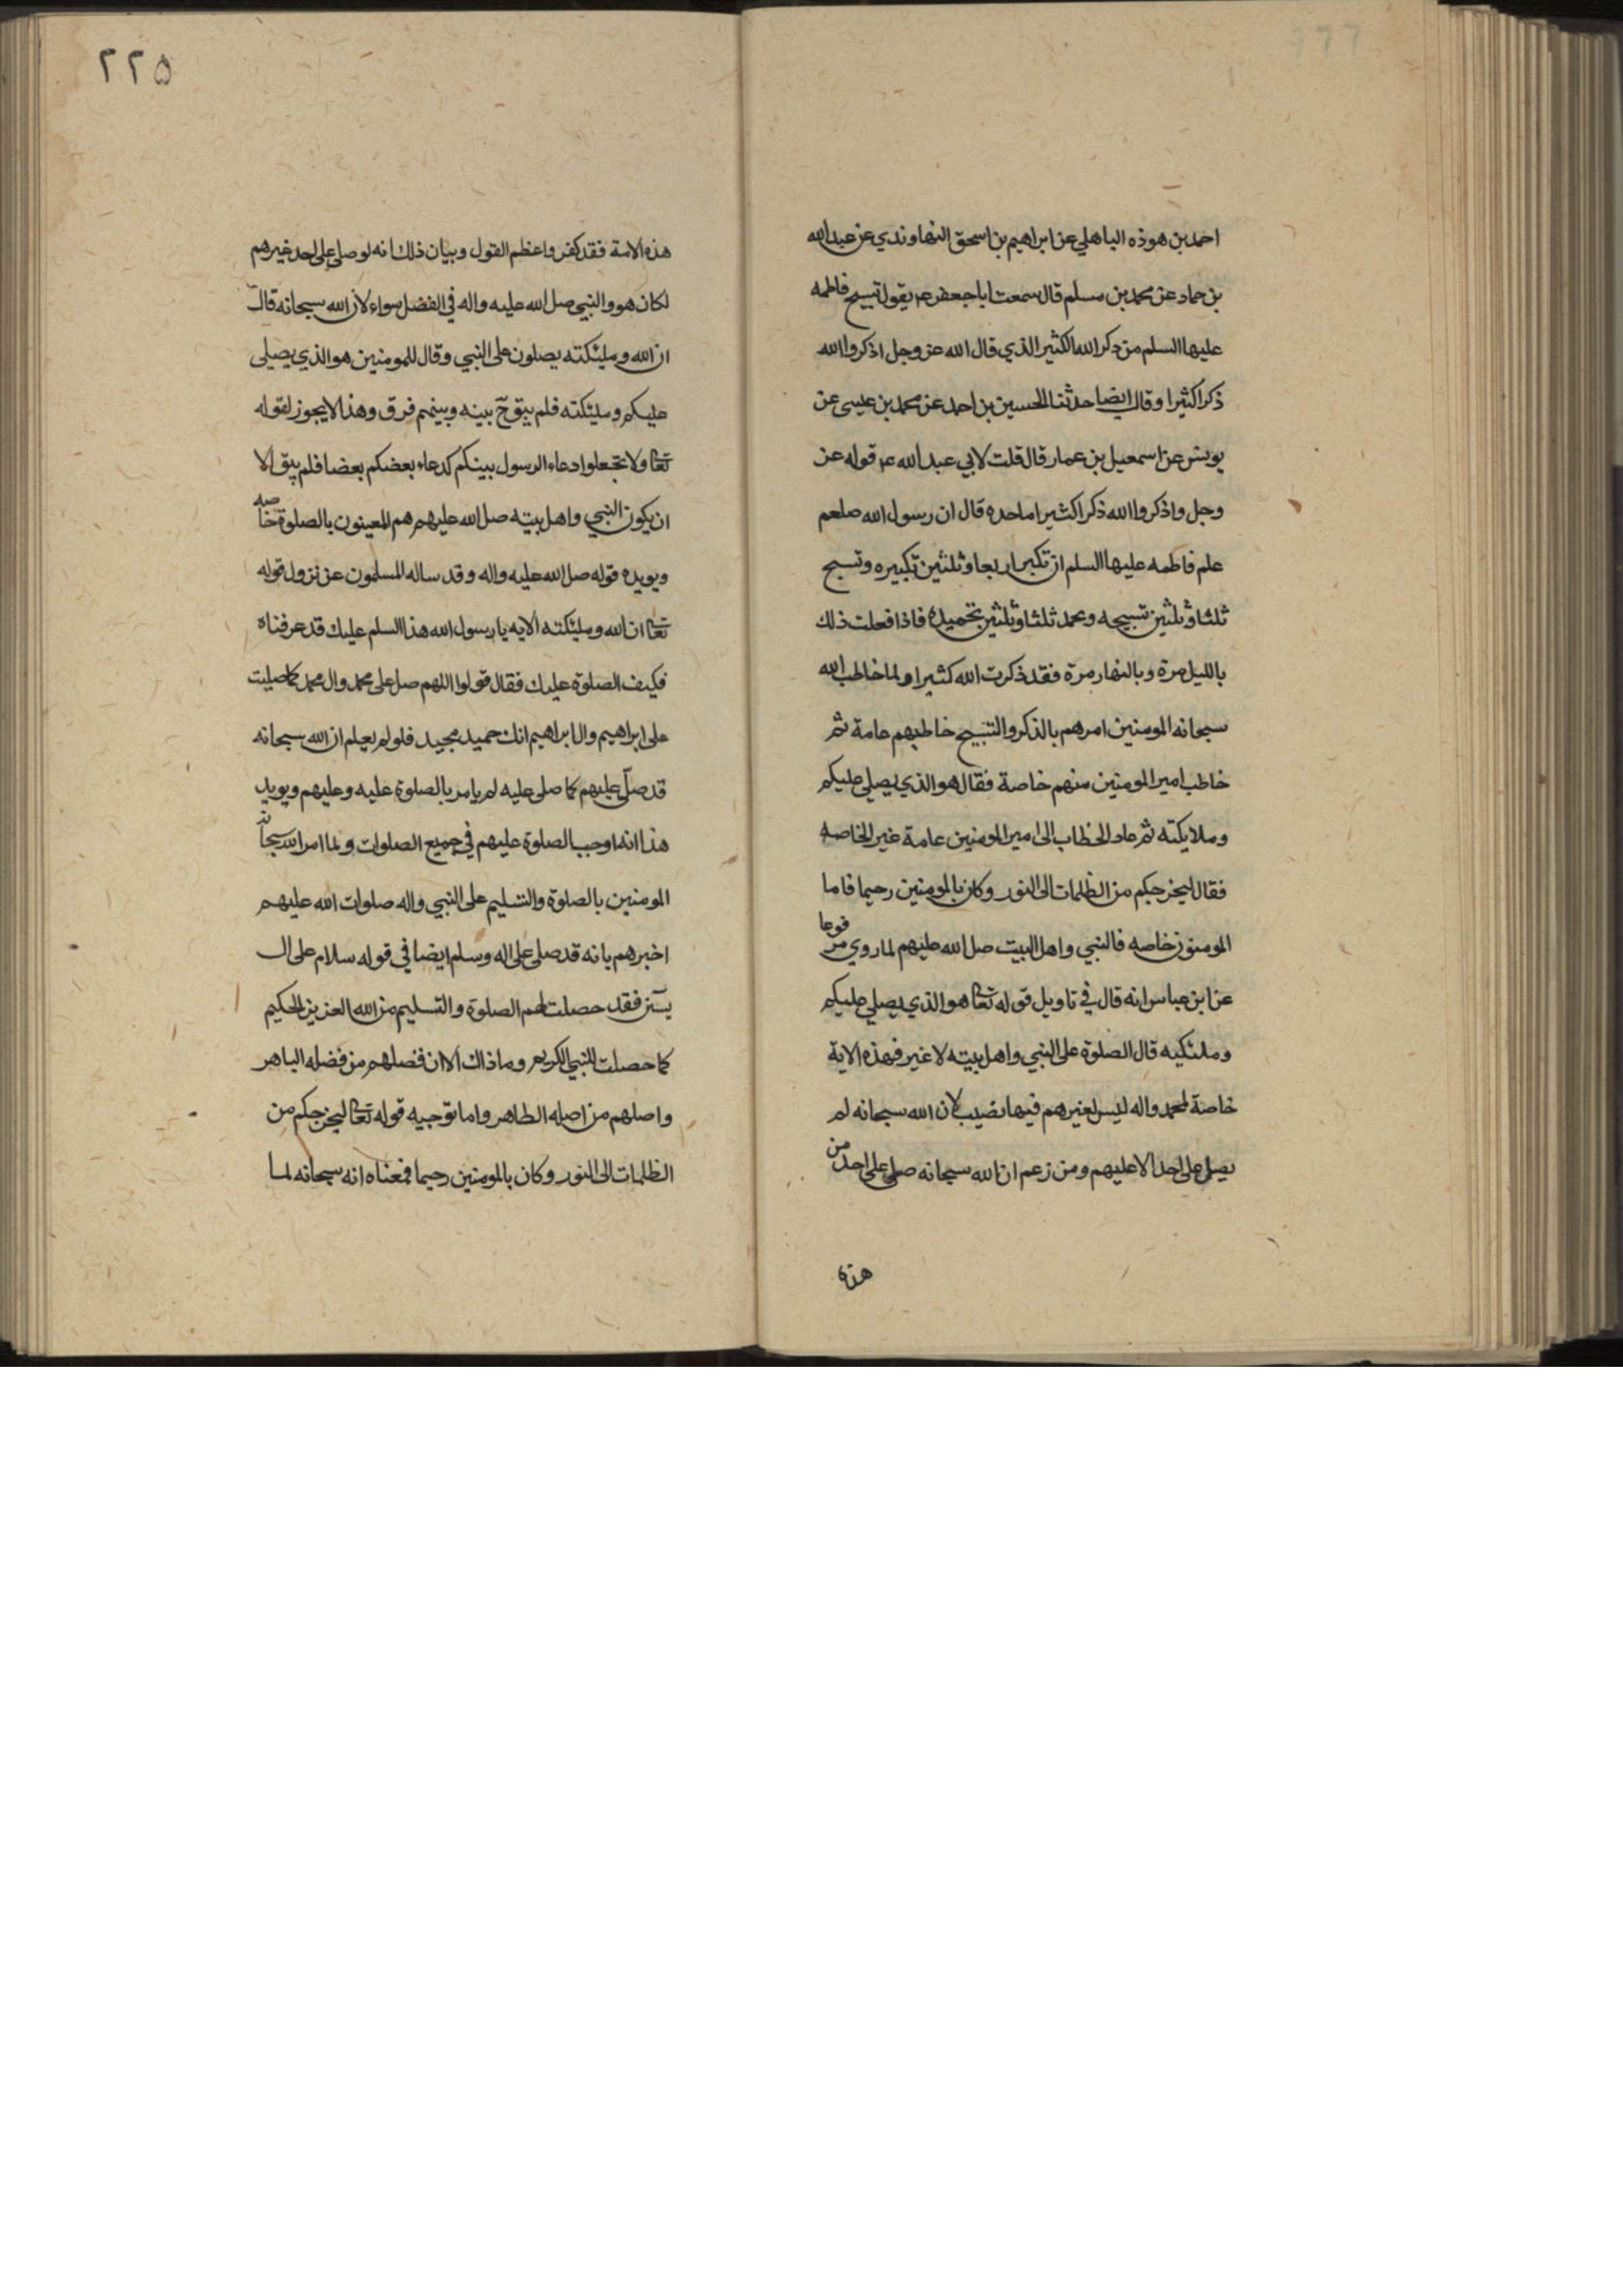 احمد بن هوذه الباهلي عن ابراهيم بن اسحق النهاوندي عن عبد الله
بن حماد عن محمد بن مسلم قال سمعت ابا جعفر ع م يقول تسبيح فاطمه
عليها السلم من ذكر الله الكثير الذي قال الله عز وجل اذكروا الله
ذكرا كثيرا وقال ايضا حدثنا الحسين بن احمد عن محمد بن عيسى عن
يونس عن اسمعيل بن عمار قال قلت لابي عبد الله ع م قوله عز
وجل واذكروا الله ذكرا كثيرا ما حده قال ان رسول الله صلعم
علم فاطمه عليها السلم ان تكبر اربعا وثلثين تكبيره وتسبح
ثلثا وثلثين تسبيحه وتحمد ثلثا وثلثين تحميده فاذا فعلت ذلك
بالليل مرة وبالنهار مرة فقد ذكرت الله كثيرا ولما خاطب الله
سبحانه المومنين امرهم بالذكر والتسبيح خاطبهم عامة ثم
خاطب امير المومنين منهم خاصة فقال هو الذي يصلي عليكم
وملايكته ثم عاد الخطاب الى امير المومنين عامة غير الخاصه
فقال ليخرجكم من الظلمات الى النور وكان بالمومنين رحيما فاما
المومنون خاصه فالنبي واهل البيت صل الله عليهم لما روي مرفوعا
عن ابن عباس انه قال في تاويل قوله تعا هو الذي يصلي عليكم
وملئكته قال الصلوة على النبي واهل بيته لا غير فهذه الاية
خاصة لمحمد واله ليس لغيرهم فيها نصيب لان الله سبحانه لم
يصل على احد الا عليهم ومن زعم ان الله سبحانه صلى على احد من
هذه
٢٢٥
هذه الامة فقد كفر واعظم القول وبيان ذلك انه لو صلى على احد غيرهم
لكان هو والنبي صل الله عليه واله في الفضل سواء لان الله سبحانه قال
ان الله وملئكته يصلون على النبي وقال للمومنين هو الذي يصلي
عليكم وملئكته فلم يبق ح بينه وبينهم فرق وهذا لا يجوز لقوله
تعا ولا تجعلوا دعاء الرسول بينكم كدعاء بعضكم بعضا فلم يبق الا
ان يكون النبي واهل بيته صل الله عليهم هم المعينون بالصلوة خاصه
ويويده قوله صل الله عليه واله وقد ساله المسلمون عن نزول قوله
تعا ان الله وملئكته الايه يا رسول الله هذا السلم عليك قد عرفناه
فكيف الصلوة عليك فقال قولوا اللهم صل على محمد وال محمد كما صليت
على ابراهيم وال ابراهيم انك حميد مجيد فلو لم يعلم ان الله سبحانه
قد صلّى عليهم كما صلى عليه لم يامر بالصلوة عليه وعليهم ويويد
هذا انه اوجب الصلوة عليهم في جميع الصلوات ولما امر الله سبحانه
المومنين بالصلوة والتسليم على النبي واله صلوات الله عليهم
اخبرهم بانه قد صلى على اله وسلم ايضا في قوله سلام على ال
يسن فقد حصلت لهم الصلوة والتسليم من الله العزيز الحكيم
كما حصلت للنبي الكريم وما ذاك الا ان فضلهم من فضله الباهر
واصلهم من اصله الطاهر واما توجيه قوله تعا ليخرجكم من
الظلمات الى النور وكان بالمومنين رحيما فمعناه انه سبحانه لما